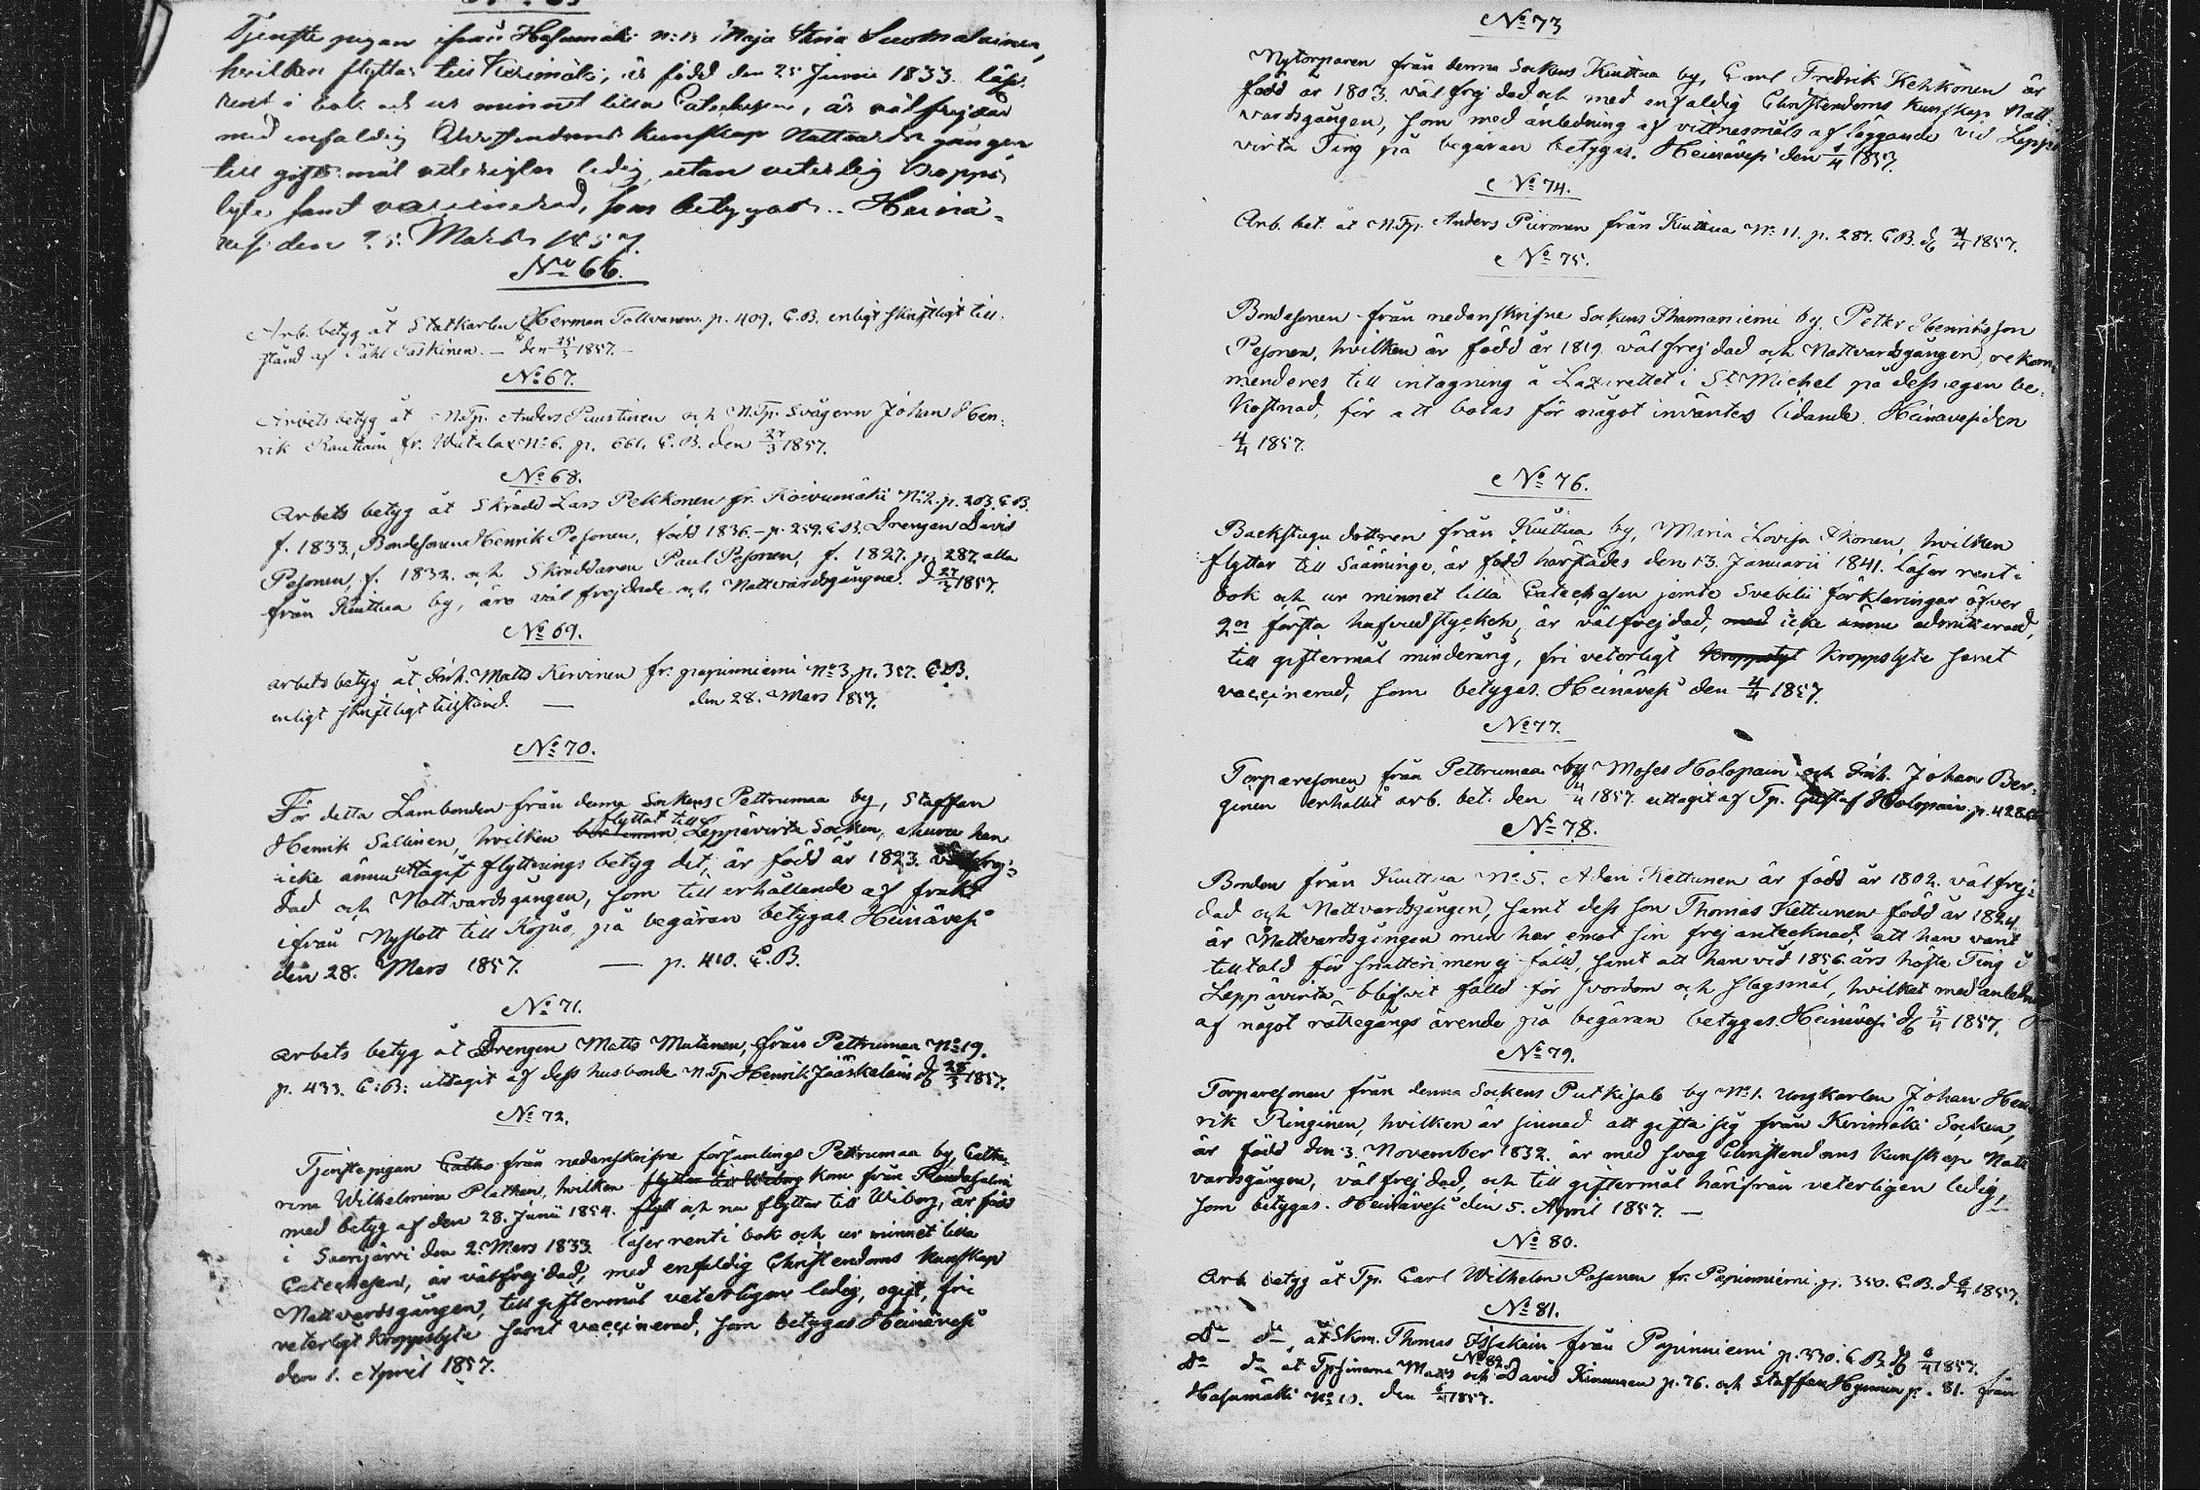 Tjenste pigan ifrån Hasumäki N:o 13 Maja Stina Suomalainen,
hvilken flyttar till Kerimäki, är född den 25 Junii 1833. läser
rent i bok och ur minnet lilla Catechesen, är välfrejdad
med enfaldig Christendoms kunskap Nattvardsgången
till giftermål veterligen ledig, utan veterlig kropps
lyte samt vaccinerad, som betygas. Heinä-
vesi den 25. Mars 1857.
No 66.
Arb. betyg åt Statkarlen Herman Tallvanen p. 409. C.B. enligt skriftligt till-
stånd af Påhl Taskinen. — den 25/3 1857. —
No 67.
Arbets betyg åt N.Tp. Anders Puustinen och N.Tp. Svågern Johan Hen-
rik Rautiain fr. Vihtalax No 6. p. 661. C.B. den 27/3 1857.
No 68.
Arbets betyg åt Skrädd Lars Pekkonen fr. Koivumäki No 2. p. 203. C.B.
f. 1833, Bondesonen Henrik Pesonen, född 1836. – p. 259. C.B. Drengen David
Pesonen, f. 1832. och Skräddaren Paul Pesonen, f. 1827. p. 287. alla
från Kuittua by, äro väl frejdade och Nattvardsgångne. d 27/3 1857.
No 69.
arbets betyg åt Inh. Matts Kervinen fr. papinniemi No 3. p. 357. C.B.
enligt skriftligt tillstånd. — den 28. Mars 1857.
No 70.
För detta Lambonden från denna Sockens Pettrumaa by, Staffan
Henrik Sallinen, hvilken flyttat till Leppävirta Socken, ehuru han
icke ännu uttagit flyttnings betyg dit, är född år 1823. välfrej-
dad och Nattvardsgången, som till erhållande af frakt
ifrån Nyslott till Kopio, på begäran betygas. Heinävesi
den 28. Mars 1857. — p. 410. C.B.
No 71.
Arbets betyg åt Drengen Matts Mutanen, från Pettrumaa No 19.
p. 433. C:B: uttagit af dess husbonde N.Tp. Henrik Jääskeläin d 28/3 1857.
No 72.
Tjenstepigan Catha från nedanskrifne församlings Pettrumaa by, Catha-
rina Wilhelmina Plathen, hvilken flyttar till Wiborg kom från Randasalmi
med betyg af den 28. Junii 1854. flytt och nu flyttar till Wiborg, är född
i Saarijärvi den 2. Mars 1833. läser rent i bok och ur minnet lilla
Catechesen, är välfrejdad, med enfaldig Christendoms kunskap
Nattvardsgången, till giftermål veterligen ledig, ogift, fri
veterligt kroppslyte samt vaccinerad, som betygas Heinävesi
den 1. April 1857.
No 73
Nytorparen från denna Sockens Kuittua by, Carl Fredrik Kekkonen är
född år 1803. välfrejdad och med enfaldig Christendoms kunskap Natt-
vardsgången, som med anledning af vittnesmåls afläggande vid Leppä
virta Ting på begäran betygas. Heinävesi den 1/4 1857.
No 74.
Arb. bet. åt N.Tp. Anders Piironen från Kuittua No 11. p. 287. C.B. d 2/4 1857.
No 75.
Bondesonen från nedanskrifne Sockens Ihamaniemi by, Petter Henriksson
Pesonen, hvilken är född år 1819. välfrejdad och Nattvardsgången, rekom-
menderes till intagning å Lazarettet i St Michel på dess egen be-
kostnad, för att botas för något invärtes lidande. Heinävesi den
4/4 1857.
No 76.
Backstugu dottren från Kuittua by, Maria Lovisa Ikonen, hvilken
flyttar till Sääminge, är född härstädes den 13. Januarii 1841. läser rent i
bok och ur minnet lilla Catechesen jemte Svebilii förklaringar öfver
2ne första hufvudstycken, är välfrejdad, med icke ännu admitterad,
till giftermål minderårig, fri veterligt kroppslyt kroppslyte samt
vaccinerad, som betygas. Heinävesi den 4/4 1857.
No 77.
Torparesonen från Pettrumaa by Moses Holopain och Inh. Johan Ber-
ginen erhållit arb. bet. den 4/4 1857. uttagit af Tp. Gustaf Holopain. p. 428.
No 78.
Bonden från Kuittua No 5. Adam Kettunen är född år 1802. välfrej-
dad och Nattvardsgången, samt dess son Thomas Kettunen född år 1824
är Nattvardsgången men har emot sin frej antecknad, att han varit
tilltald för snatteri men ej fälld, samt att han vid 1856 års höste Ting i
Leppävirta blifvit fälld för svordom och slagsmål, hvilket med anledn
af något rättegångs ärende på begäran betygas. Heinävesi d 5/4 1857.
No 79.
Torparesonen från denna Sockens Putkisalo by No 1. ungkarlen Johan Hen-
rik Ringinen, hvilken är sinnad att gifta sig från Kerimäki Socken,
är född den 3. November 1832. är med svag Christendoms kunskap Natt
vardsgången, välfrejdad, och till giftermål härifrån veterligen ledig,
som betygas. Heinävesi den 5. April 1857. —
No 80.
Arb. betyg åt Tp. Carl Wilhelm Pasanen fr. Papinniemi. p. 350. C.B. d 6/4 1857.
No 81.
Do do, åt Skm. Thomas från Papinniemi p. 330. C.B. d 6/4 1857.
No 82.
Do do åt Tpsönerna Matts och David Kinnunen p. 76. och Staffan p. 81. från
Hasumäki No 10. den 6/4 1857.